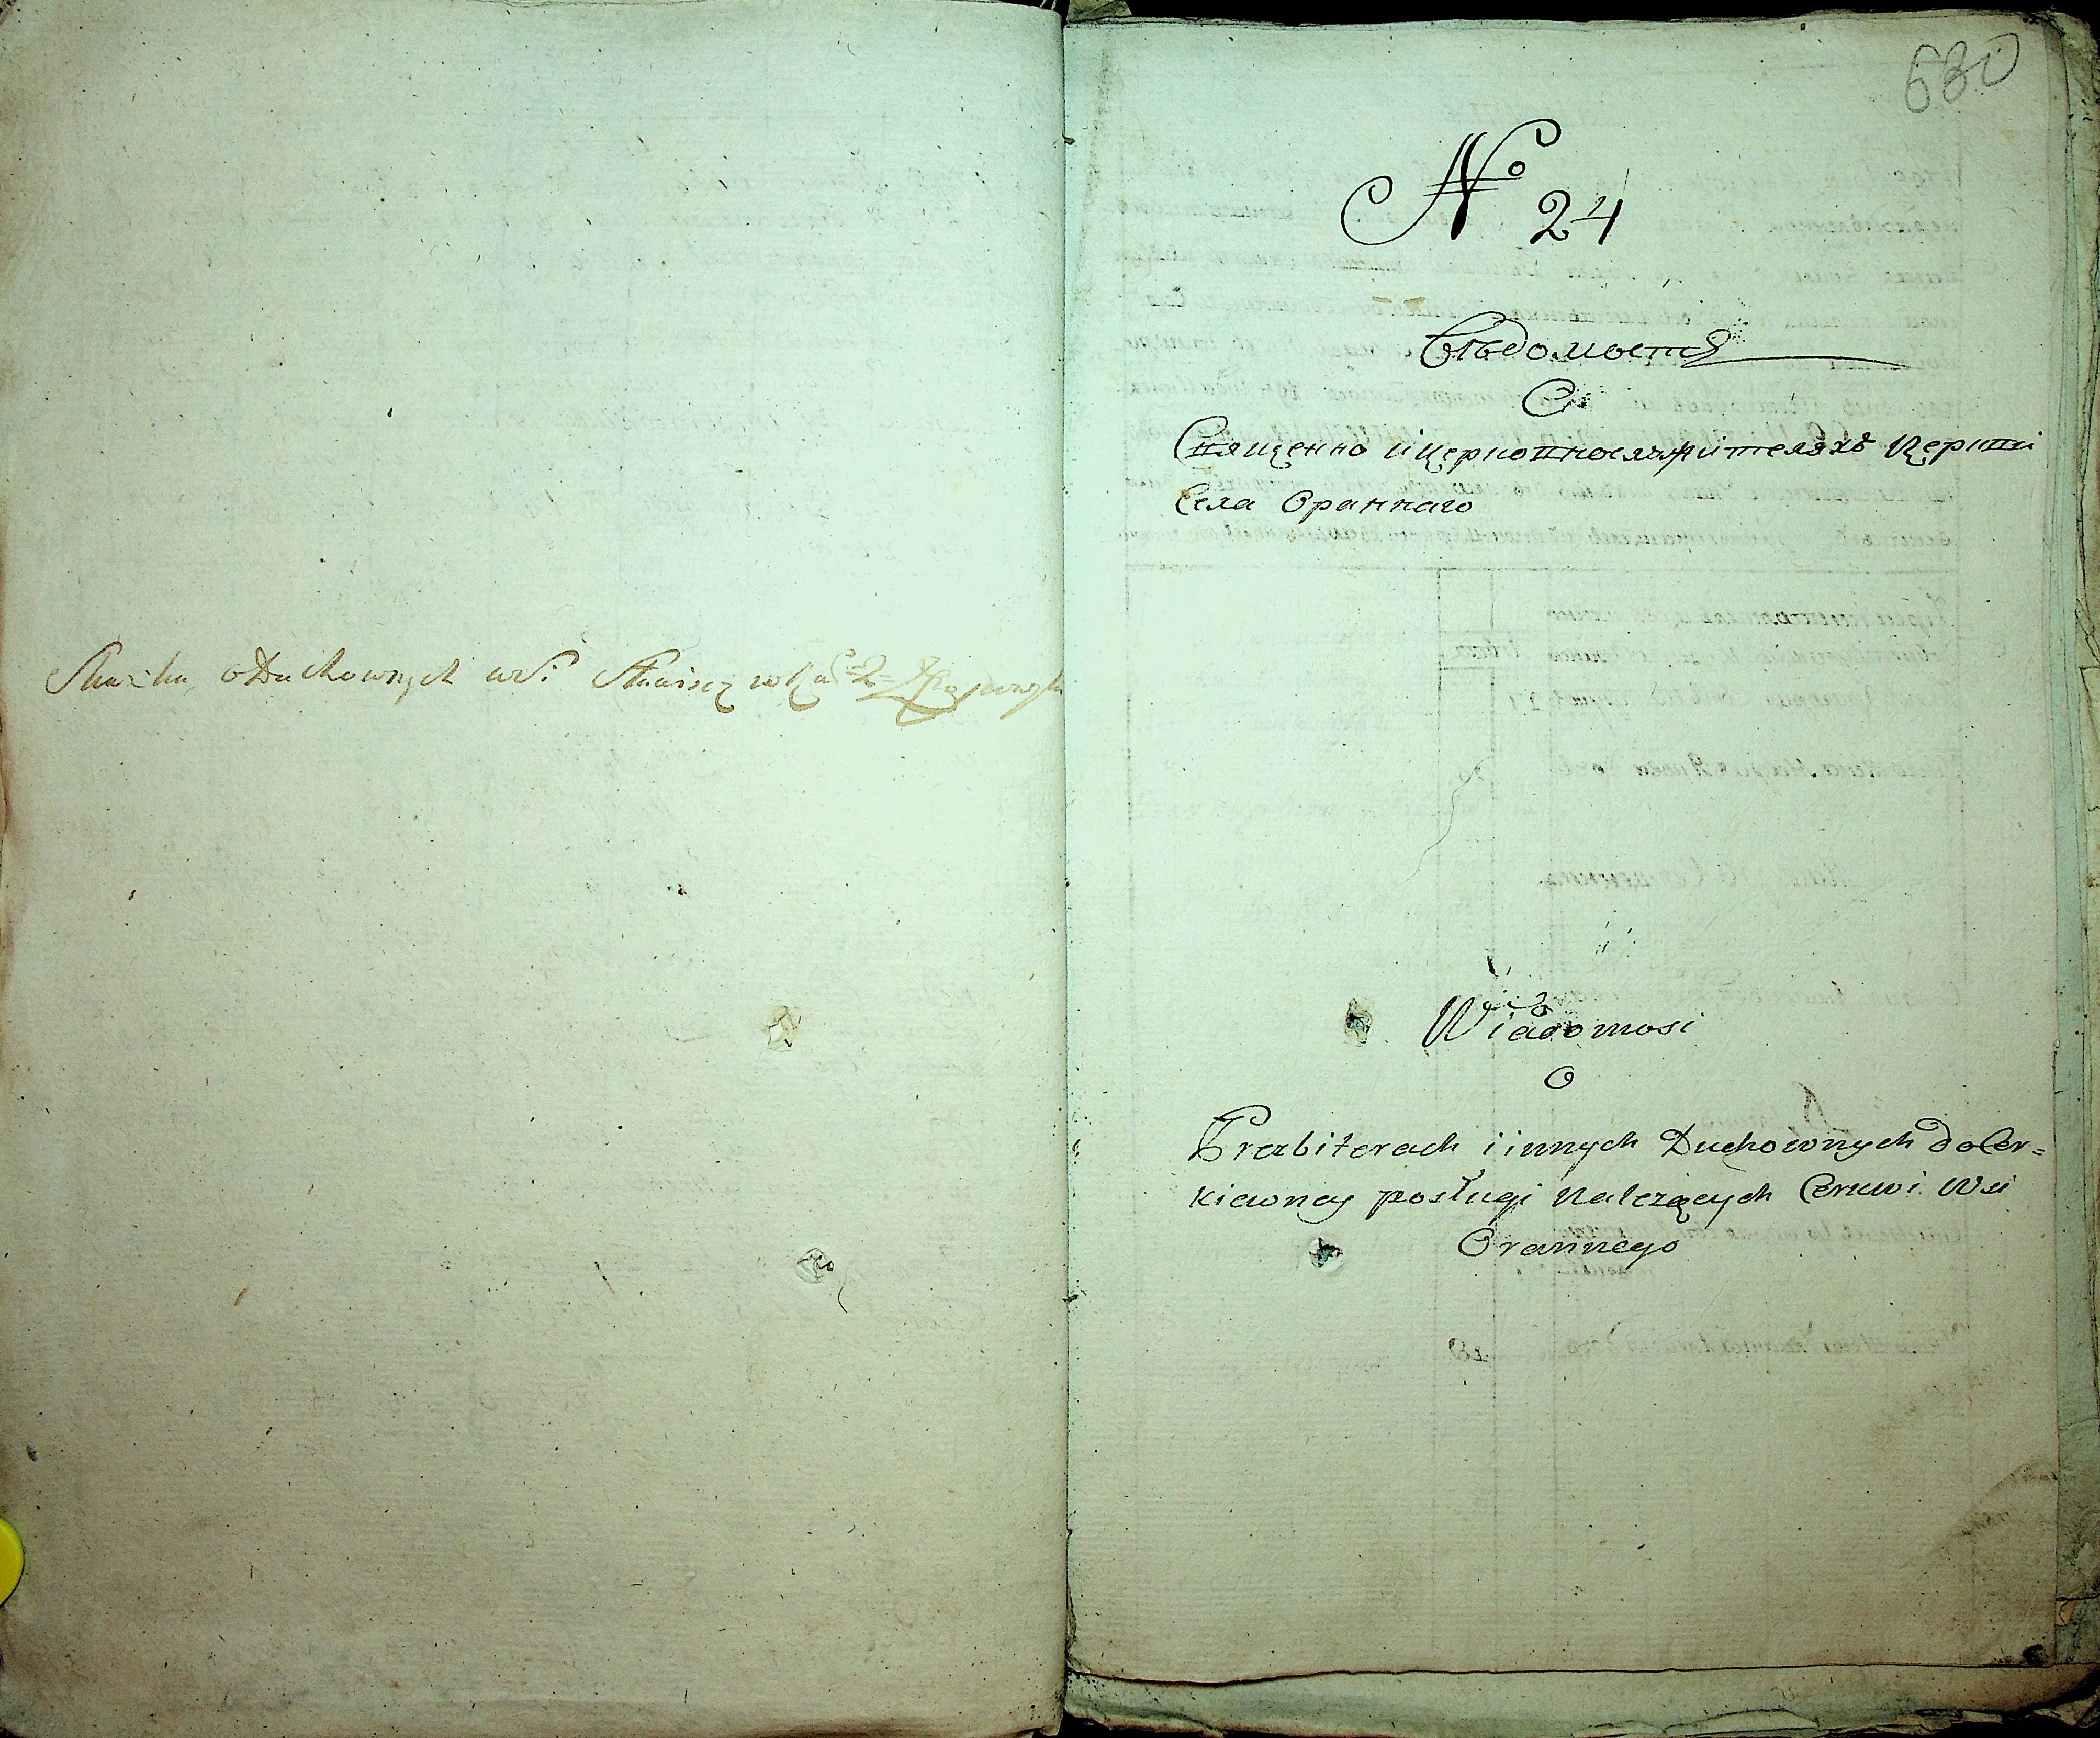 oDuchownych wsi
630
No 24
Вѣдомость
О
Священно и церковнослужителяхъ церкви
СелаОраннаго
Wiadomość
O
Prezbiterach i innych Duchownych do Cer=
kiewney posługi należących Cerkwi Wsi
Orannego